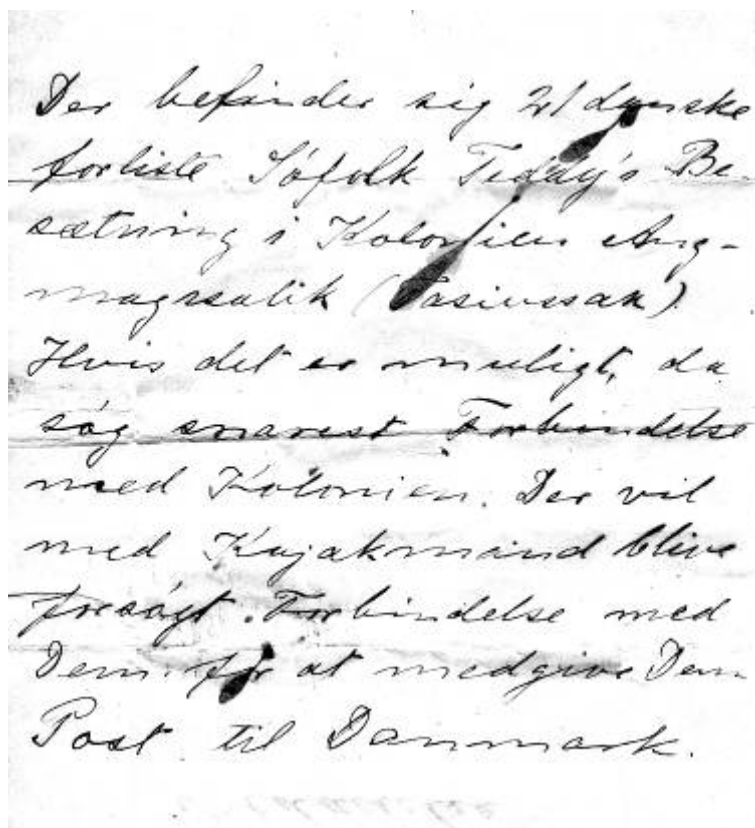 Der befinder sig 21 danske
forliste Søfolk Teddy's Be-
sætning i Kolonien Ang-
magssalik (Tasiussak).
Hvis det er muligt, da
søg snarest Forbindelse
med Kolonien. Der vil
med Kajakmand blive
forsøgt Forbindelse med
Dem for at medgive Dem
Post til Danmark.